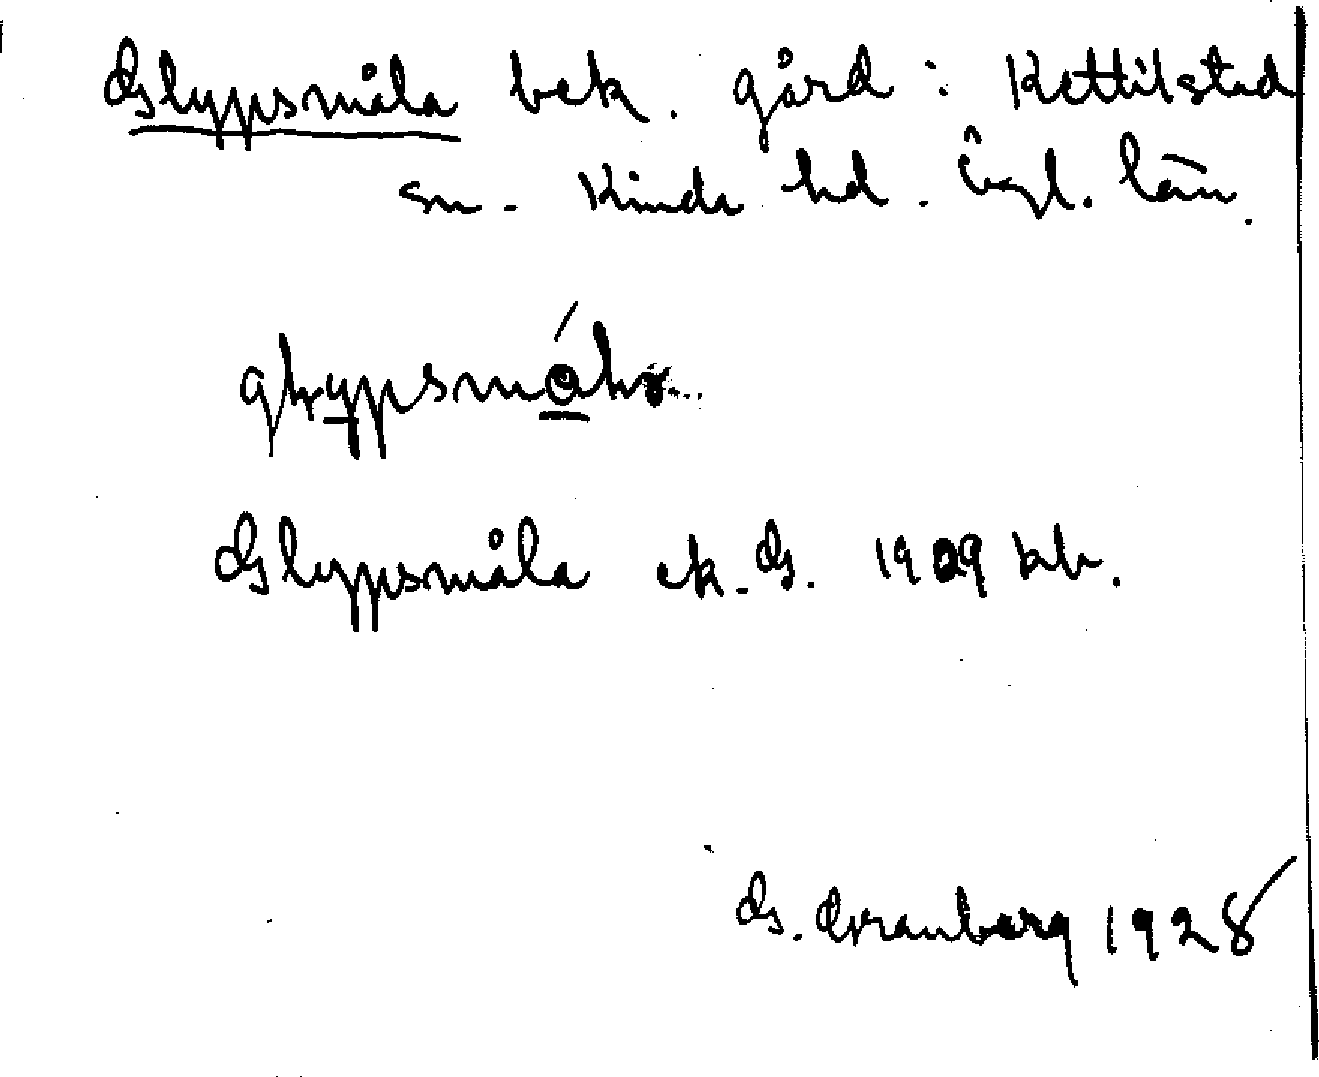 Glypsmåla bek. gård i Kettilstad
sn. Kinda hd. Ögl. län.
Glyppsmåla ek. G. 1909 kb.
G. Granberg 1928